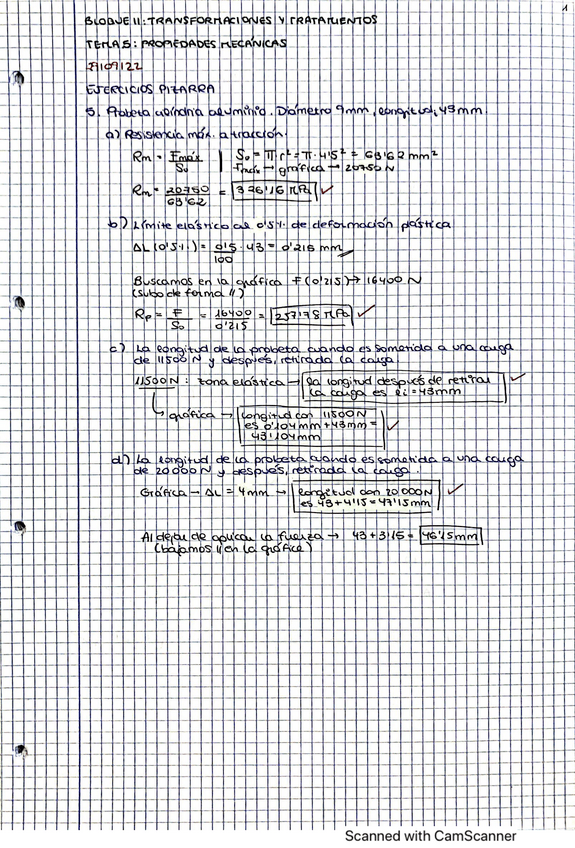 1
BLOQUE II: TRANSFORMACIONES Y TRATAMIENTOS
TEMA 5: PROPIEDADES MECÁNICAS
29/09/22
EJERCICIOS PIZARRA
5. Probeta cilíndrica aluminio. Diámetro 9mm, longitud, 43mm.
a) Resistencia máx. a tracción.
Rm = Fmáx / S₀ | S₀ = π·r² = π·4'5² = 63'62 mm²
Fmáx → gráfica → 20750 N
Rm = 20750 / 63'62 = 326'16 MPa ✓
b) Límite elástico al 0'5% de deformación plástica
ΔL (0'5%) = 0'5 / 100 · 43 = 0'215 mm
Buscamos en la gráfica F(0'215) → 16400 N
(subo de forma //)
Rp = F / S₀ = 16400 / 0'215 = 257'78 MPa ✓
c) La longitud de la probeta cuando es sometida a una carga
de 11500 N y después, retirada la carga.
11500 N : zona elástica → la longitud después de retirar
la carga es li = 43mm ✓
gráfica → longitud con 11500N
es 0'104mm + 43mm =
43'104mm ✓
d) La longitud de la probeta cuando es sometida a una carga
de 20000 N y después, retirada la carga.
Gráfica → ΔL = 4mm → longitud con 20000N
es 43 + 4'15 = 47'15mm ✓
Al dejar de aplicar la fuerza → 43 + 3'15 = 46'15mm
(bajamos // en la gráfica)
Scanned with CamScanner